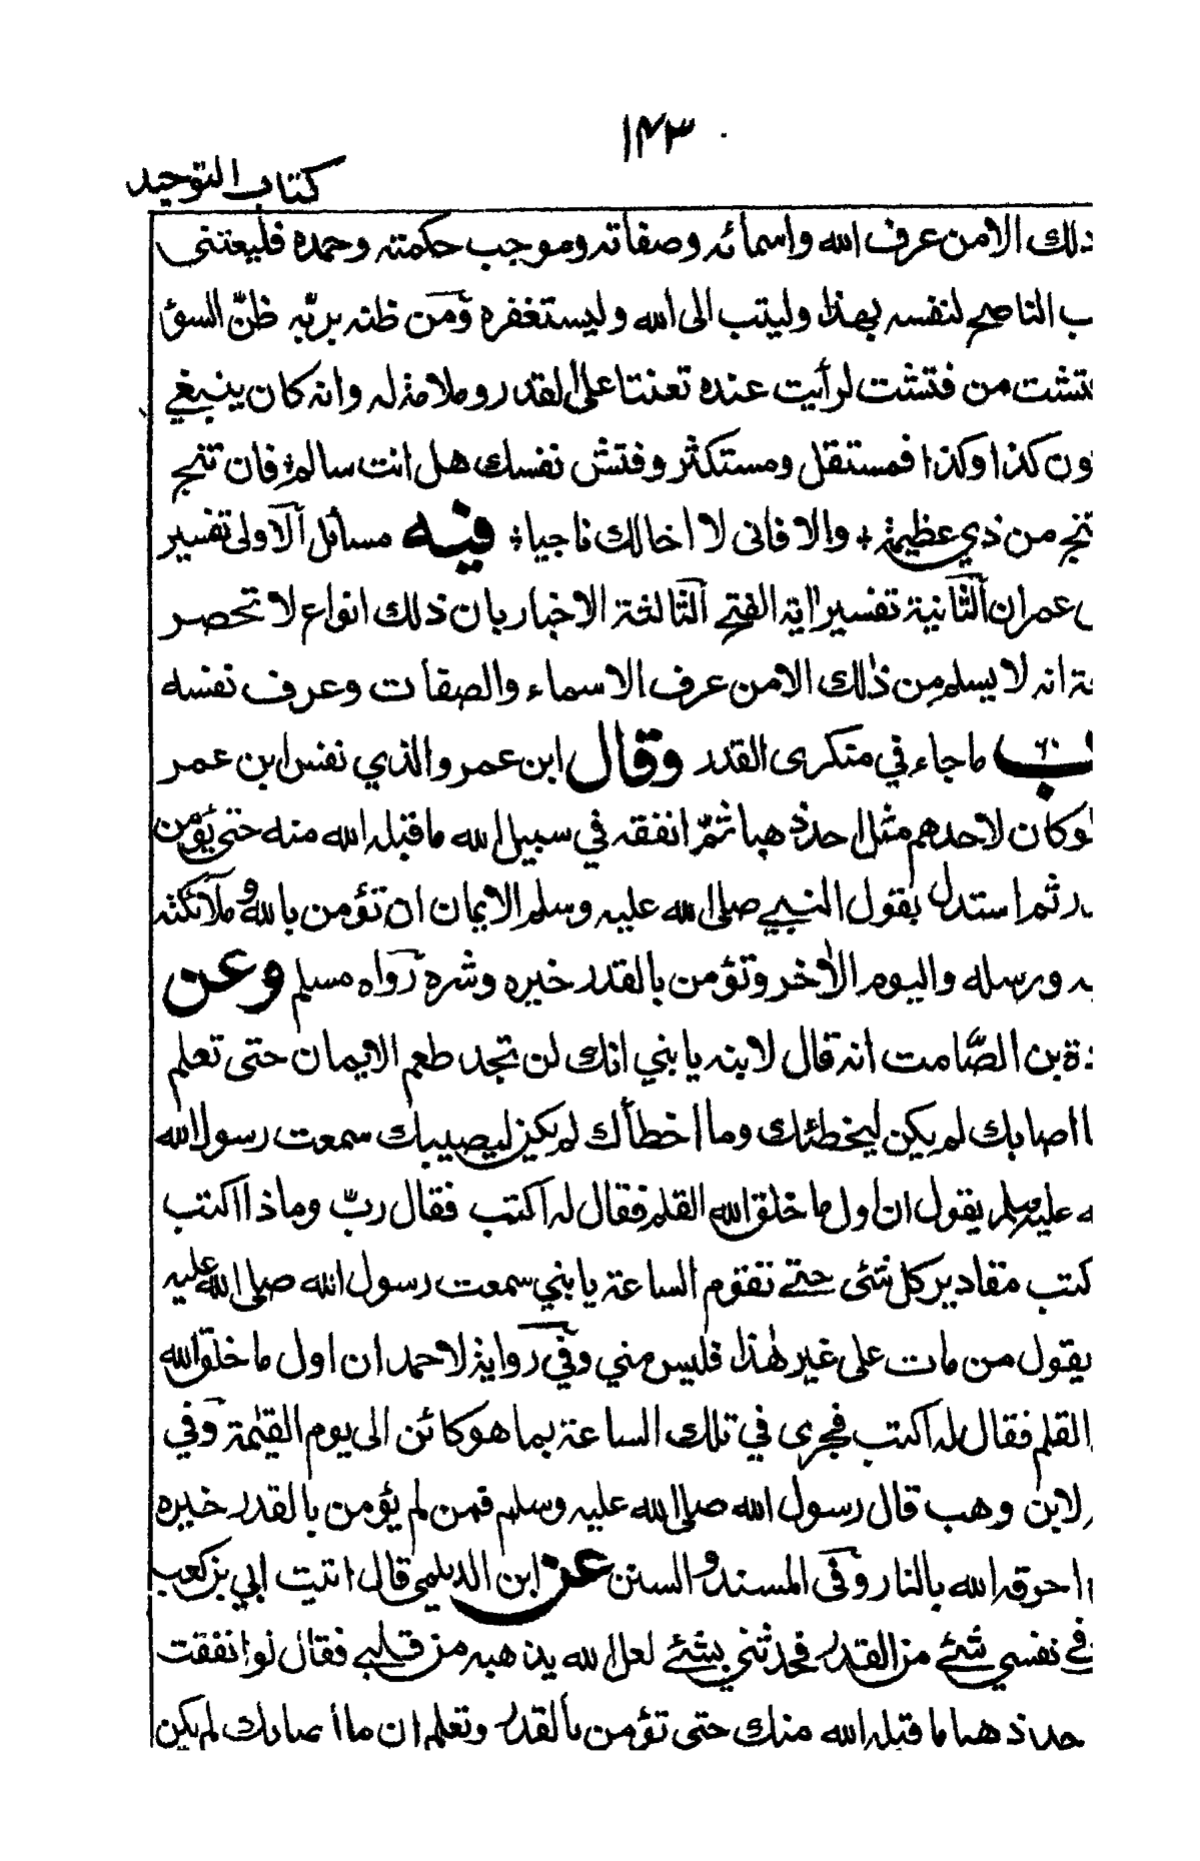 ١٤٣
كتاب التوحيد
ذلك الا من عرف الله واسمائه وصفاته وموجب حكمته وحمده فليعتنى
ب الناصح لنفسه بهذا وليتب الى الله وليستغفره ومن ظنه بربّه ظنّ السوء
فتشت من فتشت لرأيت عنده تعنتا على القدر وملامة له وانه كان ينبغي
ون كذا وكذا فمستقل ومستكثر وفتش نفسك هل انت سالم؛ فان تنج
تنج من ذي عظيمة؛ والا فانى لا اخالك ناجيا؛ فيه مسائل الاولى تفسير
عمران الثانية تفسير اية الفتح الثالثة الاخبار بان ذلك انواع لا تحصر
ة انه لا يسلم من ذلك الا من عرف الاسماء والصفات وعرف نفسه
ب ما جاء في منكرى القدر وقال ابن عمر والذي نفس ابن عمر
لو كان لاحدهم مثل احد ذهبا ثمّ انفقه في سبيل الله ما قبله الله منه حتى يؤمن
در ثم استدل بقول النبي صلى الله عليه وسلم الايمان ان تؤمن بالله وملآئكته
به ورسله واليوم الاخر وتؤمن بالقدر خيره وشره رواه مسلم وعن
دة بن الصّامت انه قال لابنه يا بني انك لن تجد طعم الايمان حتى تعلم
ما اصابك لم يكن ليخطئك وما اخطأك لم يكن ليصيبك سمعت رسول الله
ه عليه وسلم يقول ان اول ما خلق الله القلم فقال له اكتب فقال ربّ وماذا اكتب
كتب مقادير كل شئى حتى تقوم الساعة يا بني سمعت رسول الله صلى الله عليه
يقول من مات على غير هذا فليس مني وفي رواية لاحمد ان اول ما خلق الله
القلم فقال له اكتب فجرى في تلك الساعة بما هو كائن الى يوم القيمة وفي
لابن وهب قال رسول الله صلى الله عليه وسلم فمن لم يؤمن بالقدر خيره
احرقه الله بالنار وفى المسند والسنن عن ابن الديلمي قال اتيت ابي بن كعب
في نفسي شئے من القدر فحدثني بشئے لعل الله يذهبه من قلبي فقال لو انفقت
حد ذهبا ما قبله الله منك حتى تؤمن بالقدر وتعلم ان ما أصابك لم يكن